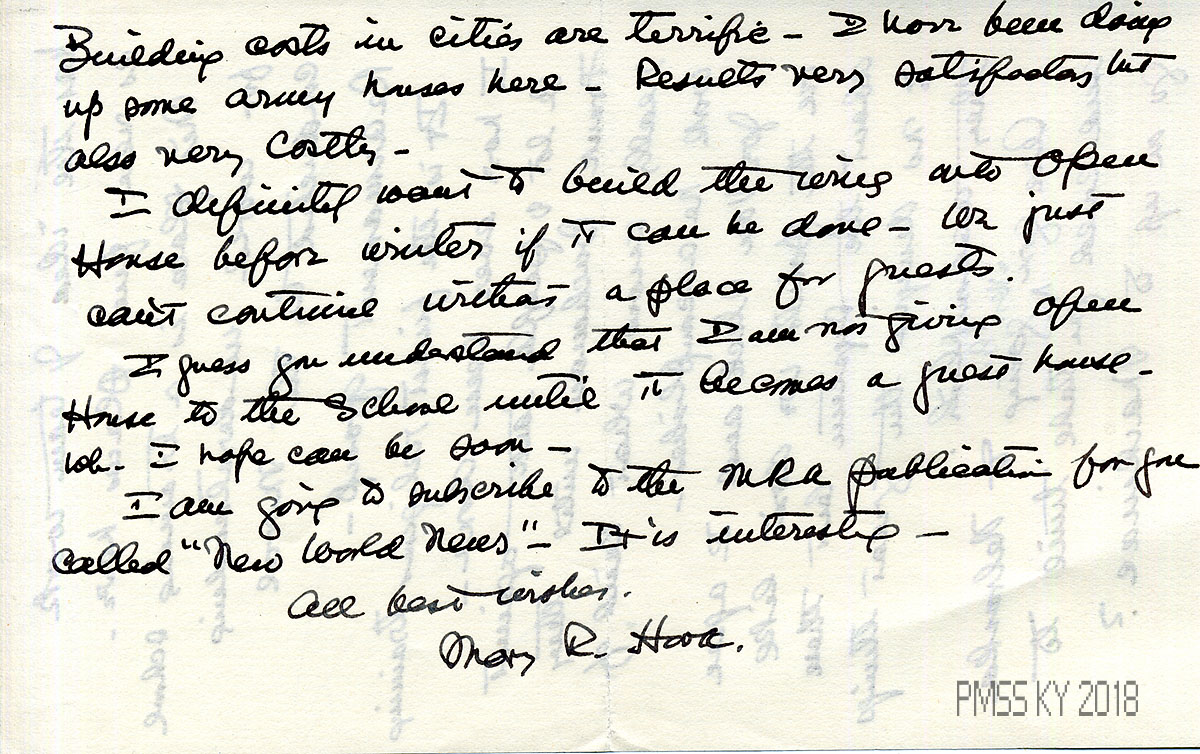 Building costs in cities are terrific - I have been doing
up some army houses here - Results very satisfactory but
also very costly -
I definitely want to build the wing onto Open
House before winter if it can be done - We just
can't continue without a place for guests.
I guess you understand that I am not giving Open
House to the School until it becomes a guest house -
wh. I hope can be soon -
I am going to subscribe to the MRA publication for you
called "New World News" - It is interesting -
All best wishes.
Mary R. Hook.
PMSS KY 2018